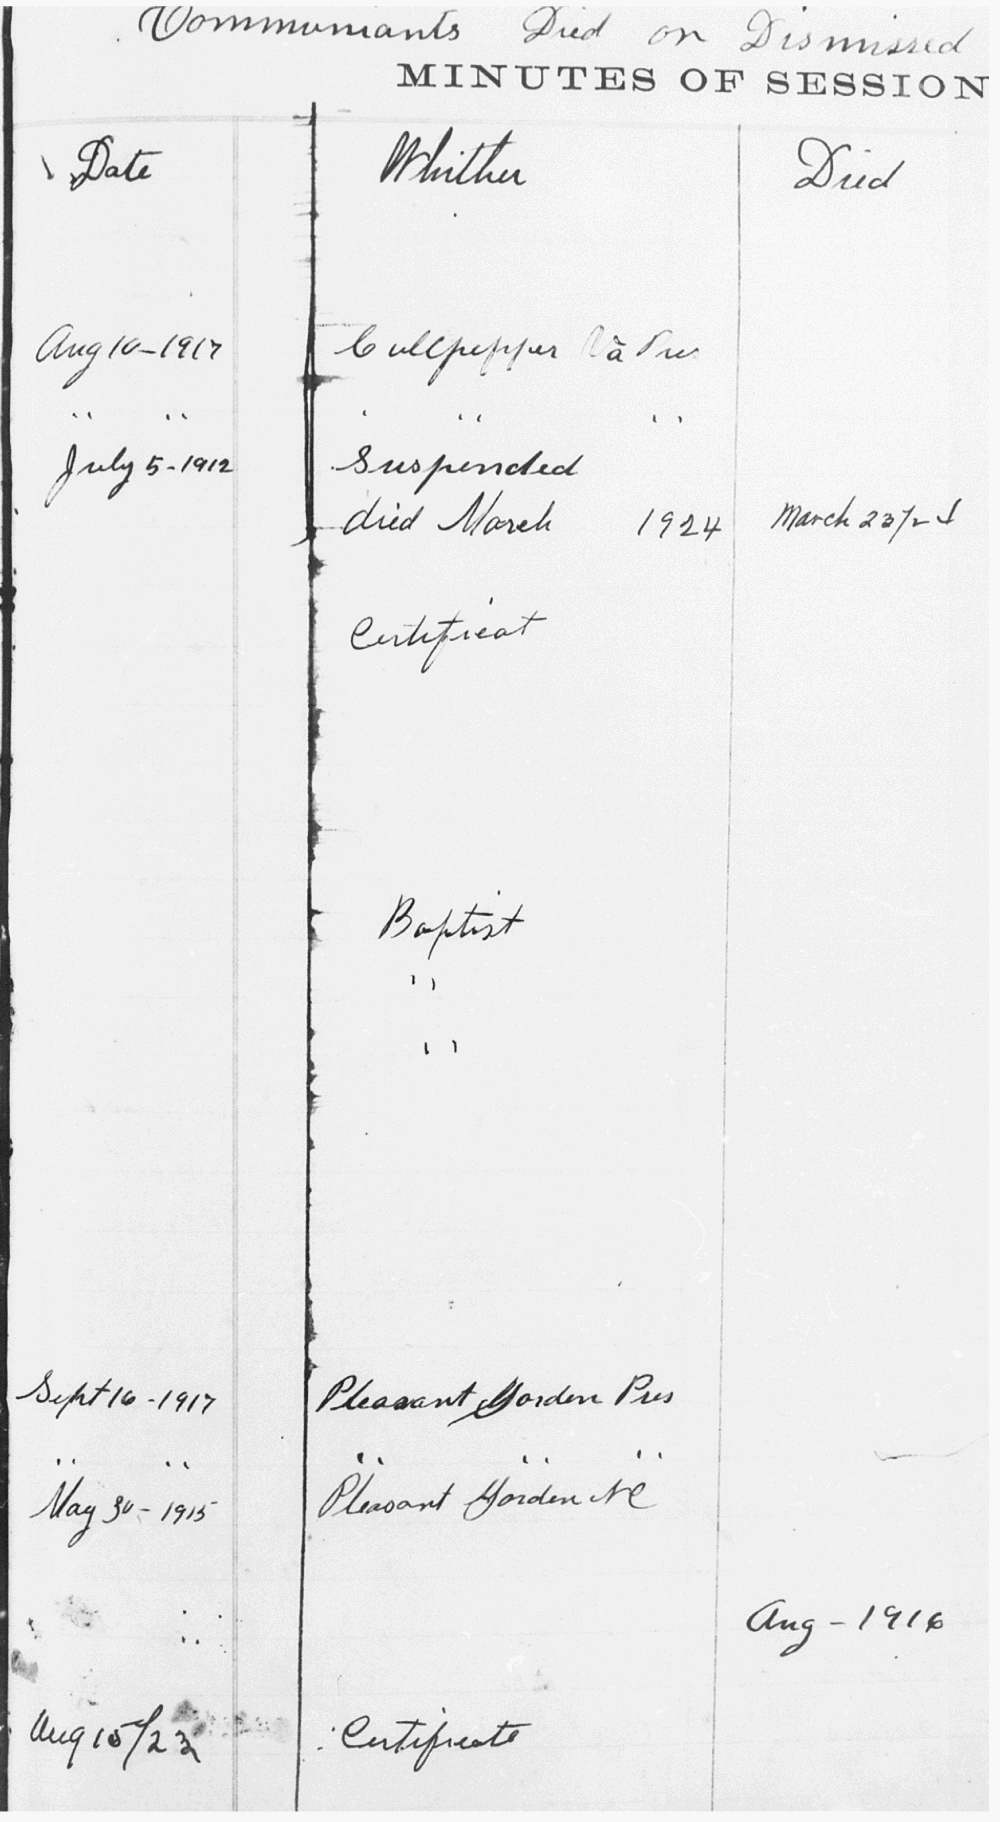 Communicants Died or Dismissed
MINUTES OF SESSION
Date Whither Died
Aug 10-1917 Cullpepper Va Pres
" " " " "
July 5-1912 Suspended
died March 1924 March 23/24
Certificat
Baptist
"
"
Sept 16-1917 Pleasant Garden Pres
" " " " "
May 30-1915 Pleasant Garden NC
Aug-1916
Aug 15/23 Certificate